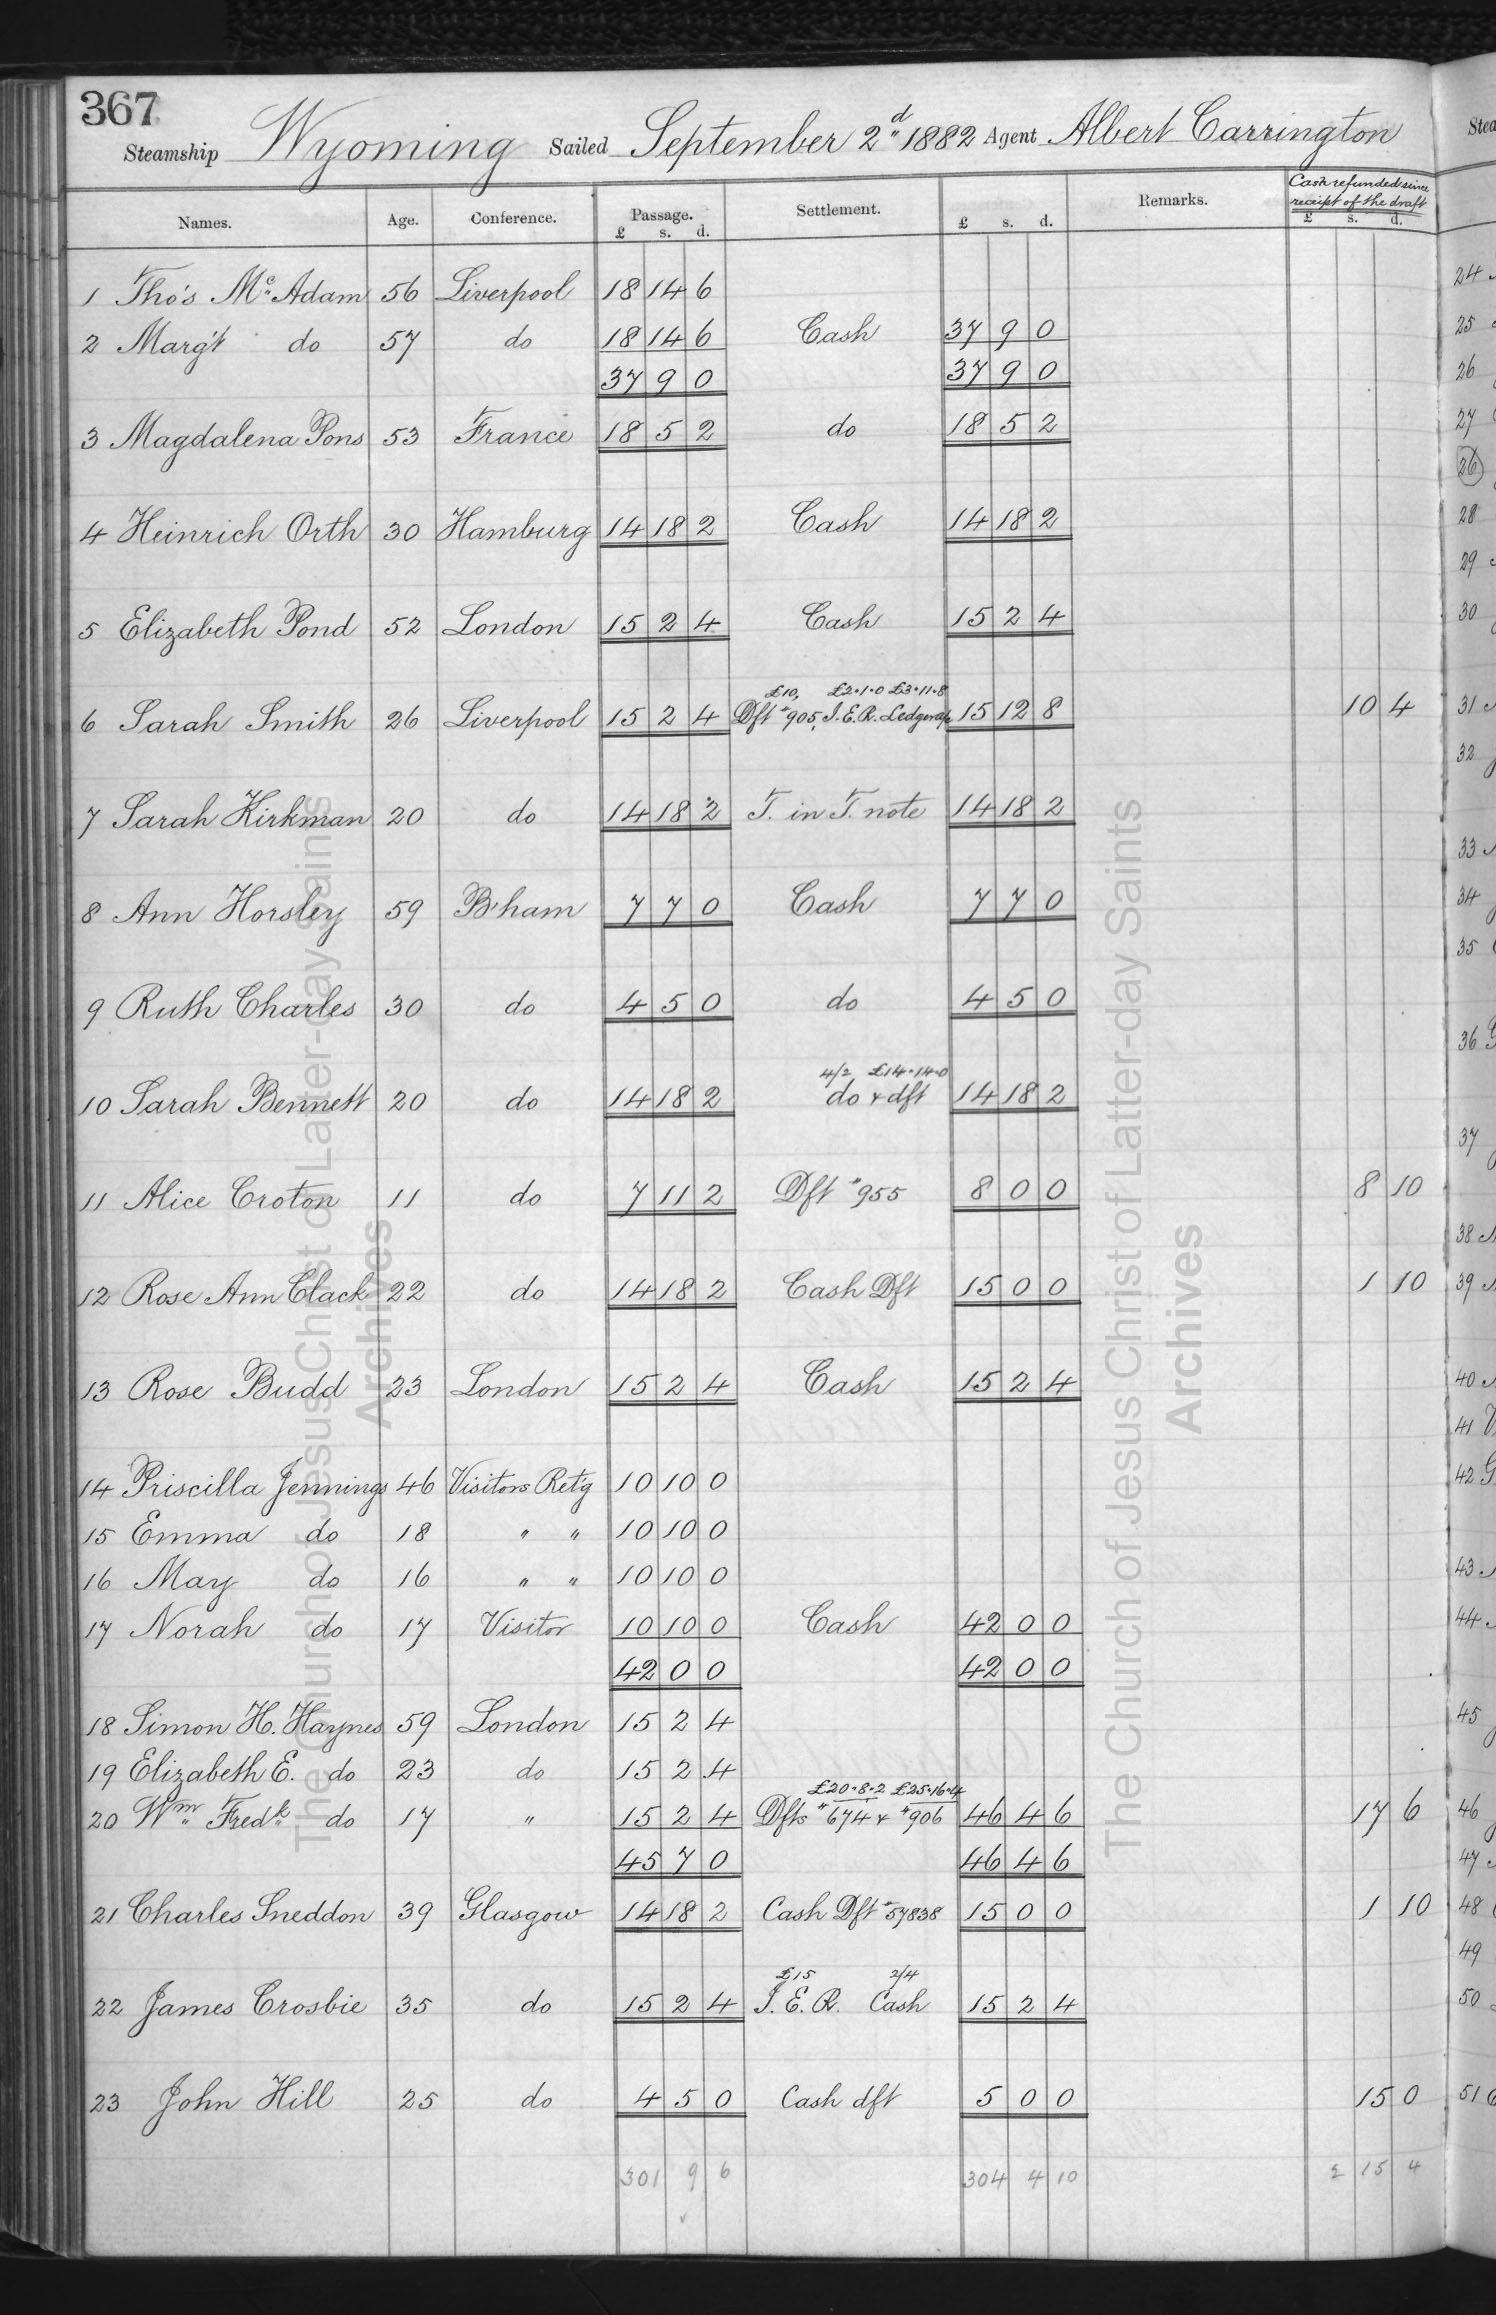 367
Steamship Wyoming Sailed September 2d 1882 Agent Albert Carrington
Names. Age. Conference. Passage. £ s. d. Settlement. £ s. d. Remarks. Cash refunded since receipt of the draft £ s. d.
1 Tho's Mc Adam 56 Liverpool 18 14 6
2 Marg't do 57 do 18 14 6 Cash 37 9 0
37 9 0 37 9 0
3 Magdalena Pons 53 France 18 5 2 do 18 5 2
4 Heinrich Orth 30 Hamburg 14 18 2 Cash 14 18 2
5 Elizabeth Pond 52 London 15 2 4 Cash 15 2 4
£10, £2.1.0 £3.11.8
6 Sarah Smith 26 Liverpool 15 2 4 Dft "905, I.E.R. 15 12 8 10 4
7 Sarah Kirkman 20 do 14 18 2 T. in T. note 14 18 2
8 Ann Horsley 59 B'ham 7 7 0 Cash 7 7 0
9 Ruth Charles 30 do 4 5 0 do 4 5 0
4/2 £14.14.0
10 Sarah Bennett 20 do 14 18 2 do & dft 14 18 2
11 Alice Croton 11 do 7 11 2 Dft "955 8 0 0 8 10
12 Rose Ann Clack 22 do 14 18 2 Cash Dft 15 0 0 1 10
13 Rose Budd 23 London 15 2 4 Cash 15 2 4
14 Priscilla Jennings 46 Visitors Ret'g 10 10 0
15 Emma do 18 " " 10 10 0
16 May do 16 " " 10 10 0
17 Norah do 17 Visitor 10 10 0 Cash 42 0 0
42 0 0 42 0 0
18 Simon H. Haynes 59 London 15 2 4
19 Elizabeth E. do 23 do 15 2 4
£20.8.2 £25.16.4
20 Wm Fredk do 17 " 15 2 4 Dfts "674 & "906 46 4 6 17 6
45 7 0 46 4 6
21 Charles Sneddon 39 Glasgow 14 18 2 Cash Dft "57838 15 0 0 1 10
£15 2/4
22 James Crosbie 35 do 15 2 4 I.E.R. Cash 15 2 4
23 John Hill 25 do 4 5 0 Cash dft 5 0 0 15 0
301 9 6 304 4 10 2 15 4
The Church of Jesus Christ of Latter-day Saints
Archives
The Church of Jesus Christ of Latter-day Saints
Archives
24
25
26
27
26
28
29
30
31
32
33
34
35
36
37
38
39
40
41
42
43
44
45
46
47
48
49
50
51